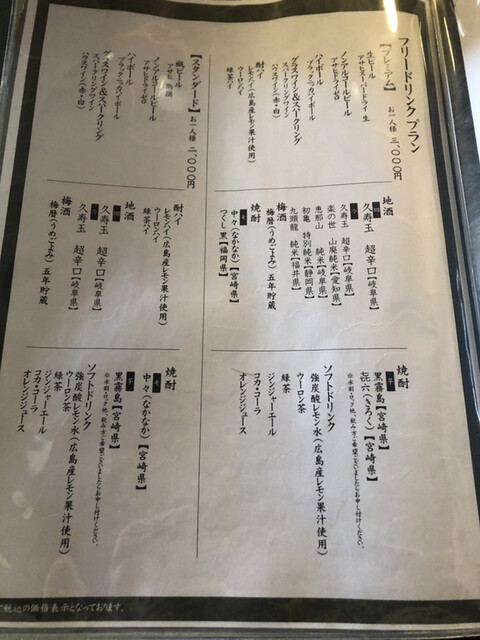 フリードリンクプラン
【プレミアム】 お一人様 三、〇〇〇円
生ビール
アサヒスーパードライ 生
ノンアルコールビール
アサヒドライゼロ
ハイボール
ブラックニッカハイボール
グラスワイン&スパークリング
スパークリングワイン
ハウスワイン(赤・白)
酎ハイ
レモンハイ(広島産レモン果汁使用)
ウーロンハイ
緑茶ハイ
地酒
久寿玉 超辛口【岐阜県】
久寿玉 超辛口【岐阜県】
楽の世 山廃純米【愛知県】
恵那山 純米【岐阜県】
初亀 特別純米【静岡県】
九頭龍 純米【福井県】
梅酒
梅暦(うめごよみ)五年貯蔵
焼酎
麦
中々(なかなか)【宮崎県】
つくし黒【福岡県】
焼酎
芋
黒霧島【宮崎県】
㐂六(きろく)【宮崎県】
※水割、ロック他、飲み方ご希望ございましたらお申し付けください。
ソフトドリンク
強炭酸レモン水(広島産レモン果汁使用)
ウーロン茶
緑茶
ジンジャーエール
コカ・コーラ
オレンジジュース
【スタンダード】 お一人様 二、〇〇〇円
瓶ビール
アサヒ 熟撰
ノンアルコールビール
アサヒドライゼロ
ハイボール
ブラックニッカハイボール
グラスワイン&スパークリング
スパークリングワイン
ハウスワイン(赤・白)
酎ハイ
レモンハイ(広島産レモン果汁使用)
ウーロンハイ
緑茶ハイ
地酒
久寿玉 超辛口【岐阜県】
久寿玉 超辛口【岐阜県】
梅酒
梅暦(うめごよみ)五年貯蔵
焼酎
麦
中々(なかなか)【宮崎県】
芋
黒霧島【宮崎県】
※水割、ロック他、飲み方ご希望ございましたらお申し付けください。
ソフトドリンク
強炭酸レモン水(広島産レモン果汁使用)
ウーロン茶
緑茶
ジンジャーエール
コカ・コーラ
オレンジジュース
て税込の価格表示となっております。